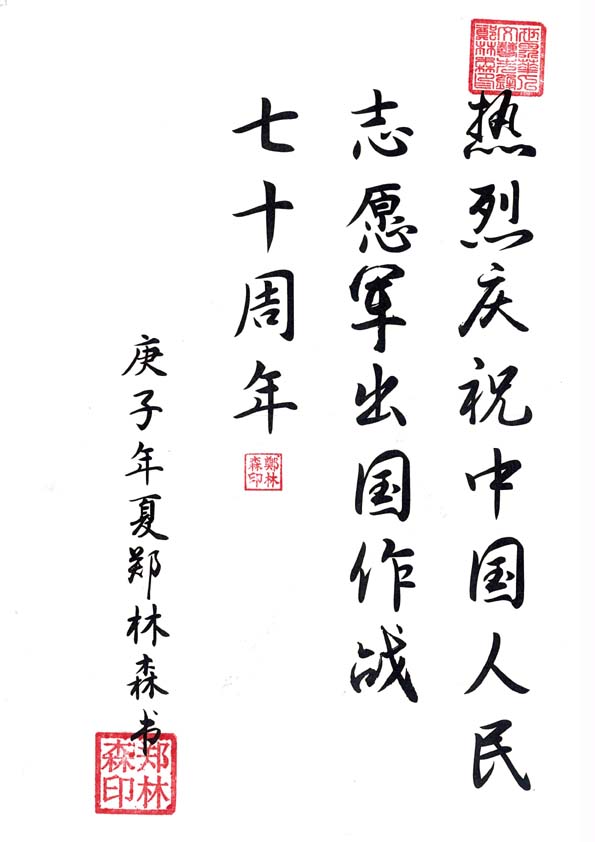 热烈庆祝中国人民
志愿军出国作战
七十周年
庚子年夏郑林森书
鄭林
森印
郑林
森印